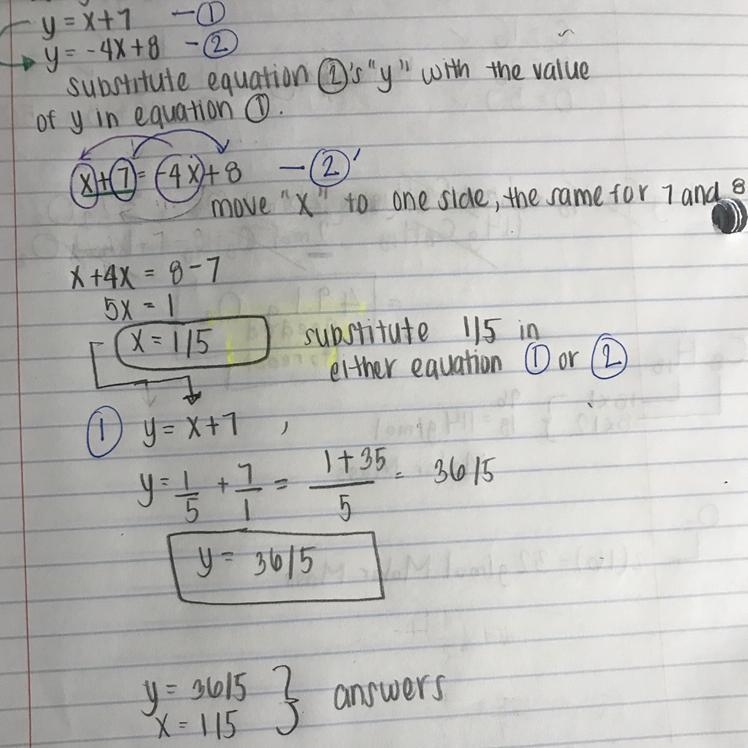 y = x+7 —①
y = -4x+8 —②
substitute equation ②'s "y" with the value
of y in equation ①.
x+7 = -4x+8 —②'
move "x" to one side, the same for 7 and 8
x+4x = 8-7
5x = 1
x = 1/5 substitute 1/5 in
either equation ① or ②
① y = x+7 ,
y = 1/5 + 7/1 = 1+35/5 = 36/5
y = 36/5
y = 36/5 } answers
x = 1/5